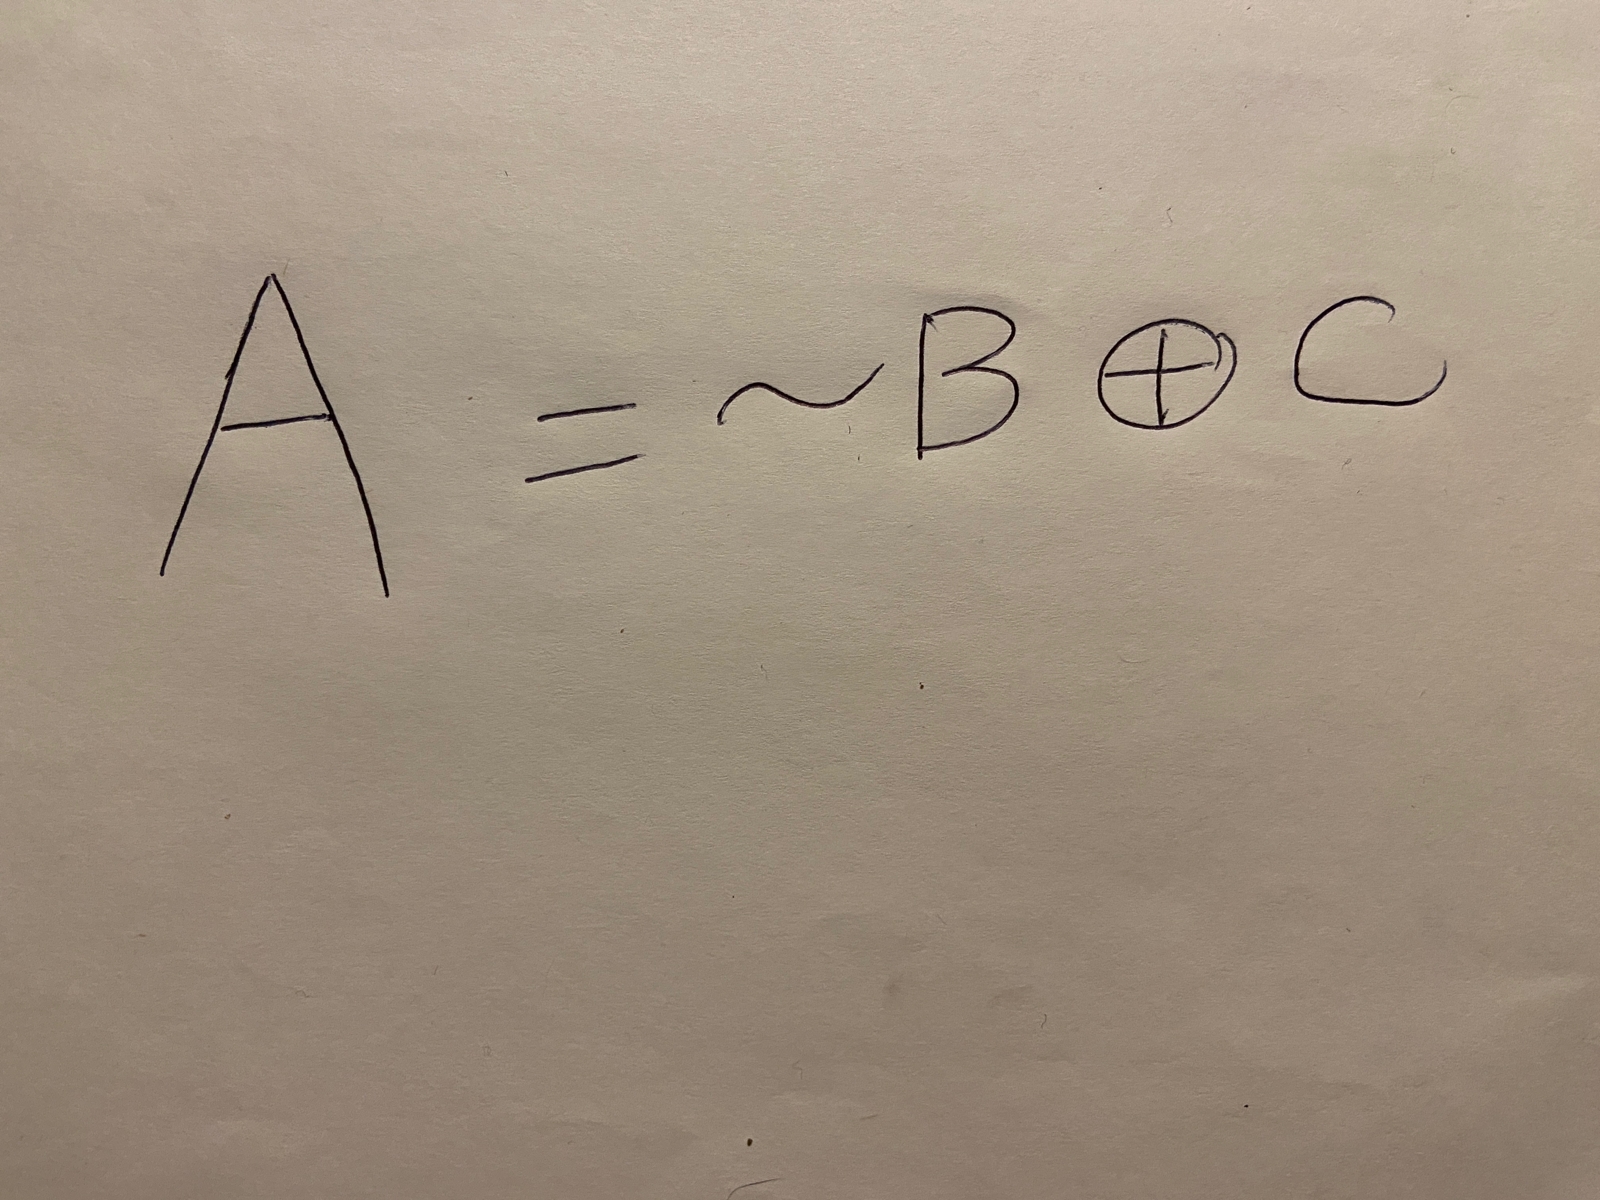 A = ~B ⊕ C